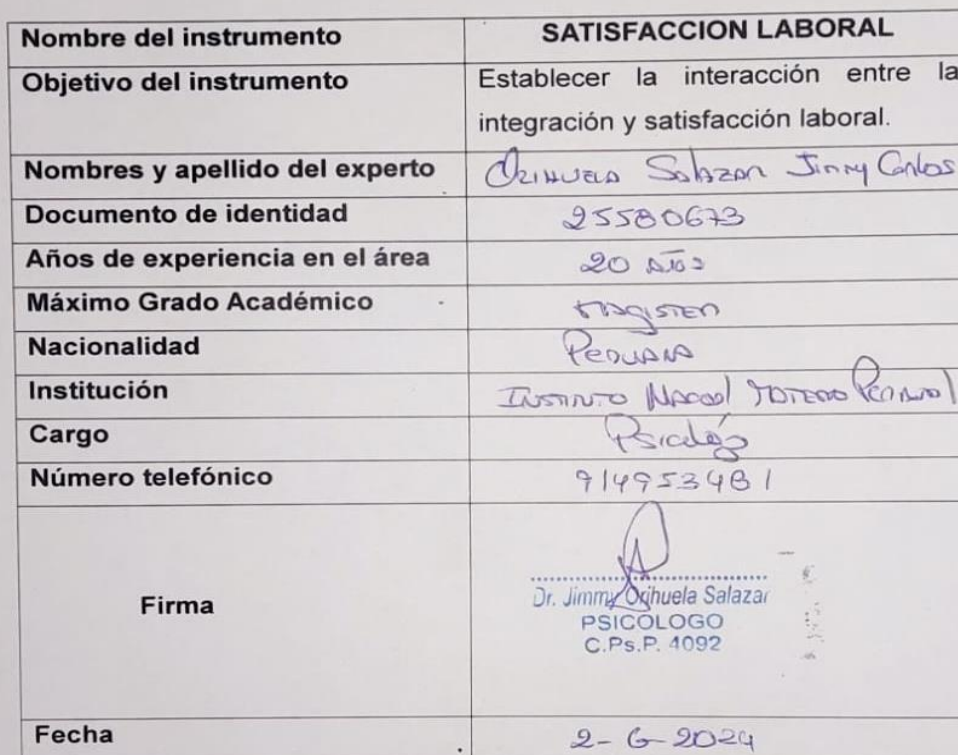 Nombre del instrumento SATISFACCION LABORAL
Objetivo del instrumento Establecer la interacción entre la
integración y satisfacción laboral.
Nombres y apellido del experto Orihuela Salazar Jimmy Carlos
Documento de identidad 25580673
Años de experiencia en el área 20 años
Máximo Grado Académico Magister
Nacionalidad Peruana
Institución Instituto Materno Perinatal
Cargo Psicólogo
Número telefónico 914953481
Firma
Dr. Jimmy Orihuela Salazar
PSICOLOGO
C.Ps.P. 4092
Fecha 2-6-2024